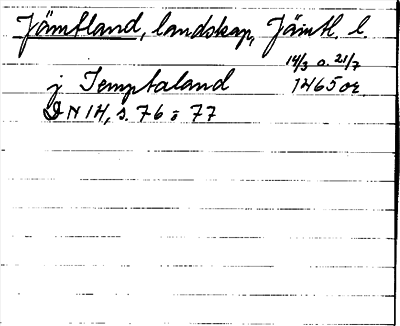 Jämtland, landskap, Jämtl. l.
14/3 o. 21/7
j Jemptaland 1465 or.
DN 14, s. 76 o 77